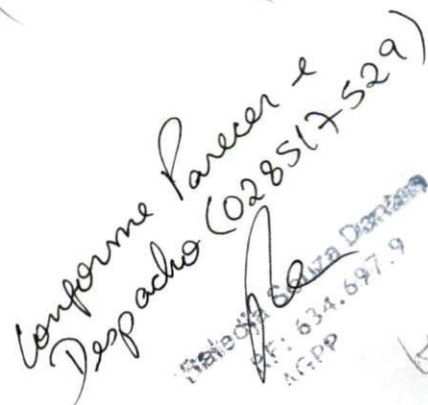 conforme Parecer e
Despacho (028517529)
Souza
RF: 634.697.9
AGPP